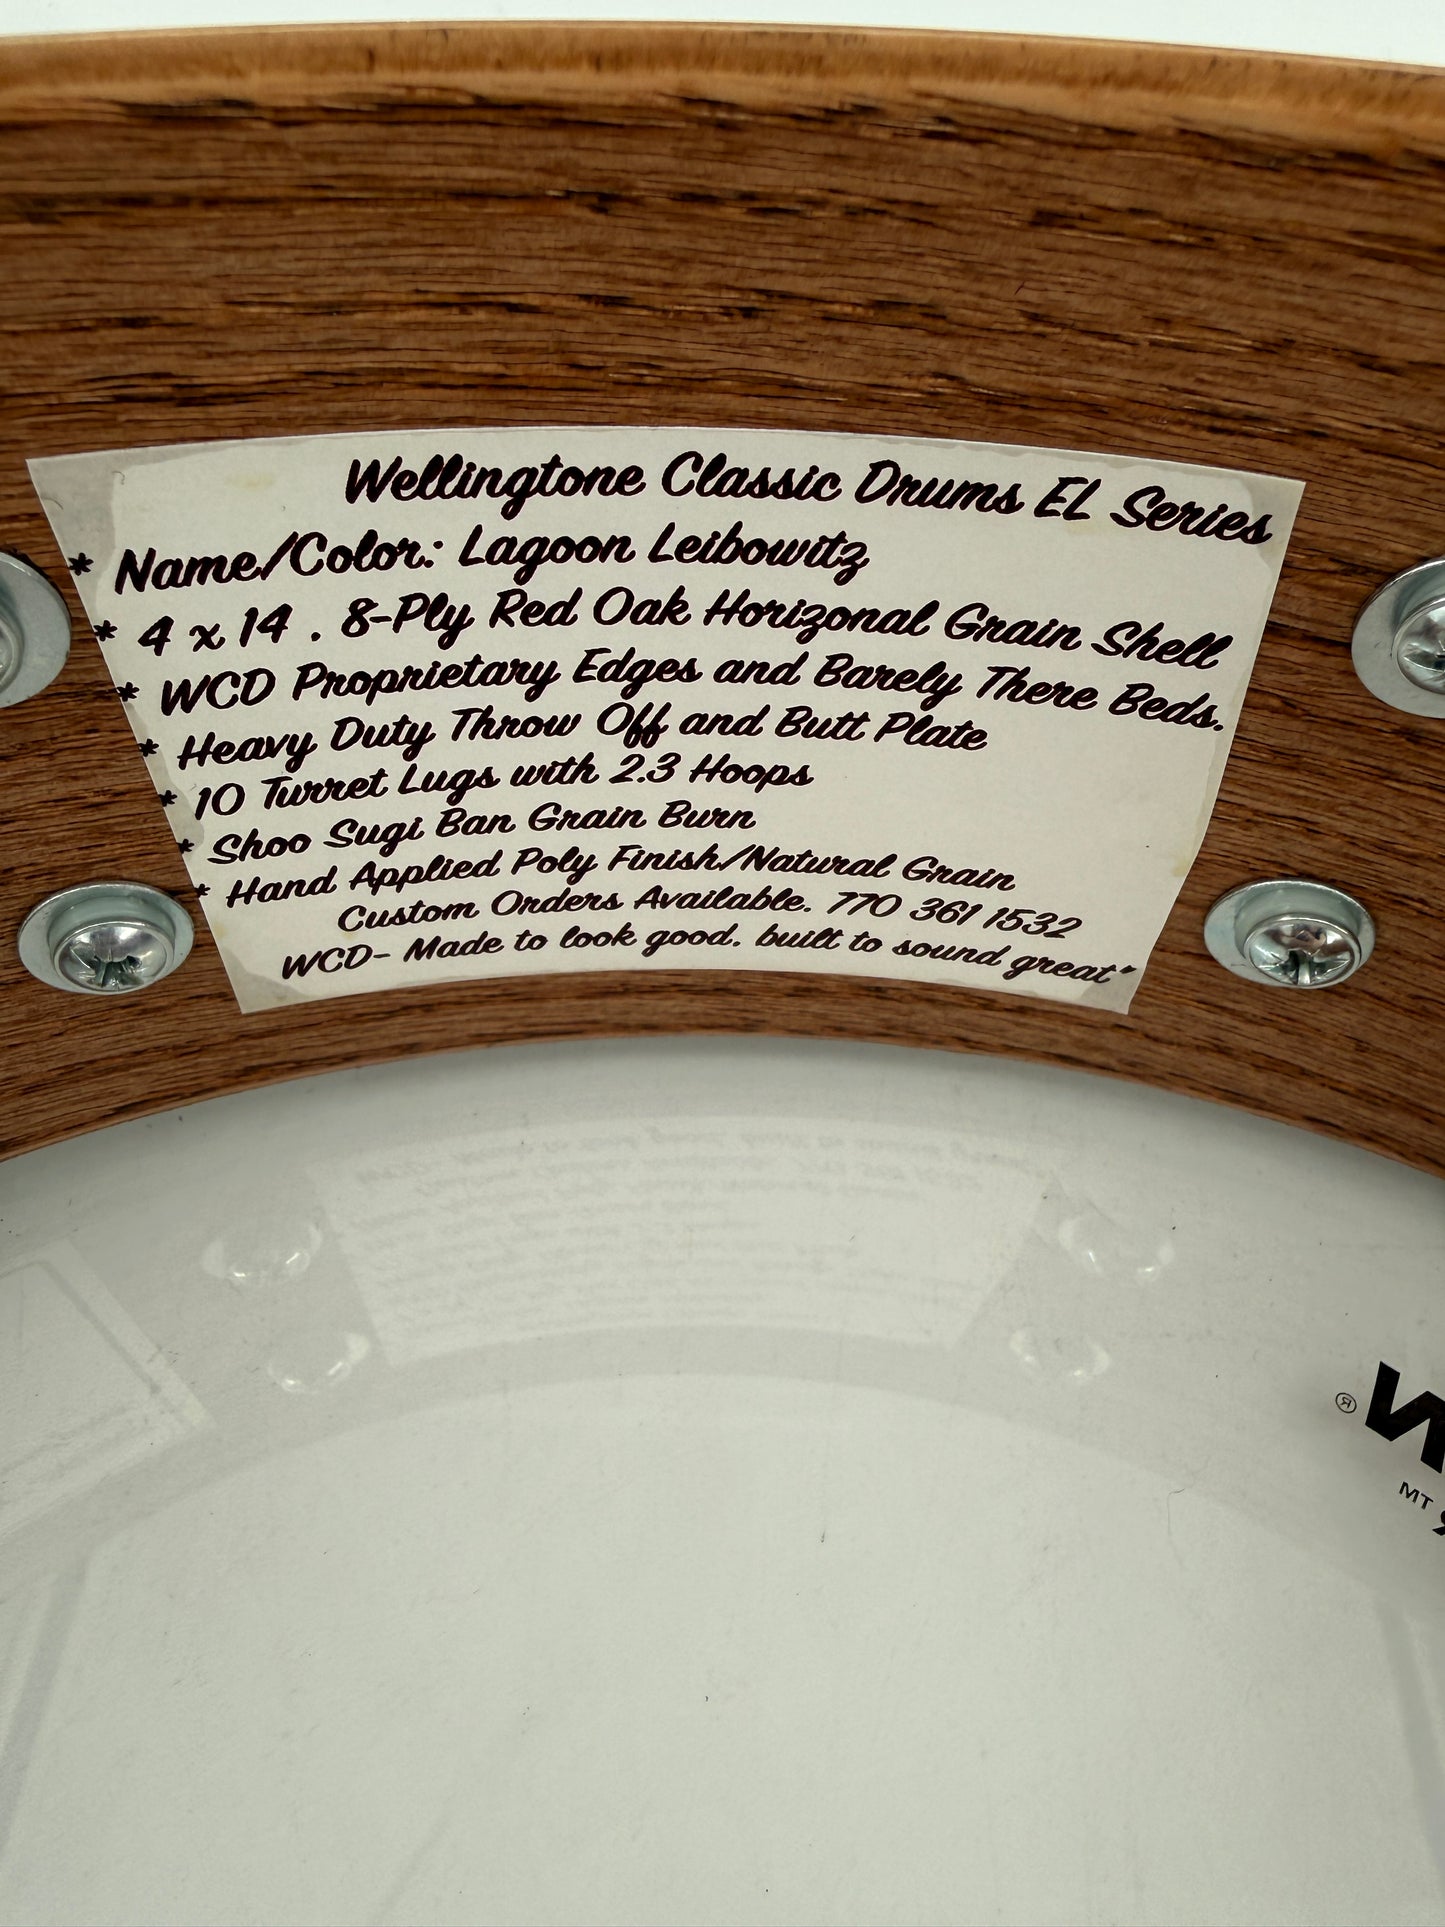 Wellingtone Classic Drums EL Series
* Name/Color: Lagoon Leibowitz
* 4 x 14 . 8-Ply Red Oak Horizonal Grain Shell
* WCD Proprietary Edges and Barely There Beds.
* Heavy Duty Throw Off and Butt Plate
* 10 Turret Lugs with 2.3 Hoops
* Shoo Sugi Ban Grain Burn
* Hand Applied Poly Finish/Natural Grain
Custom Orders Available. 770 361 1532
WCD- Made to look good. built to sound great"
®